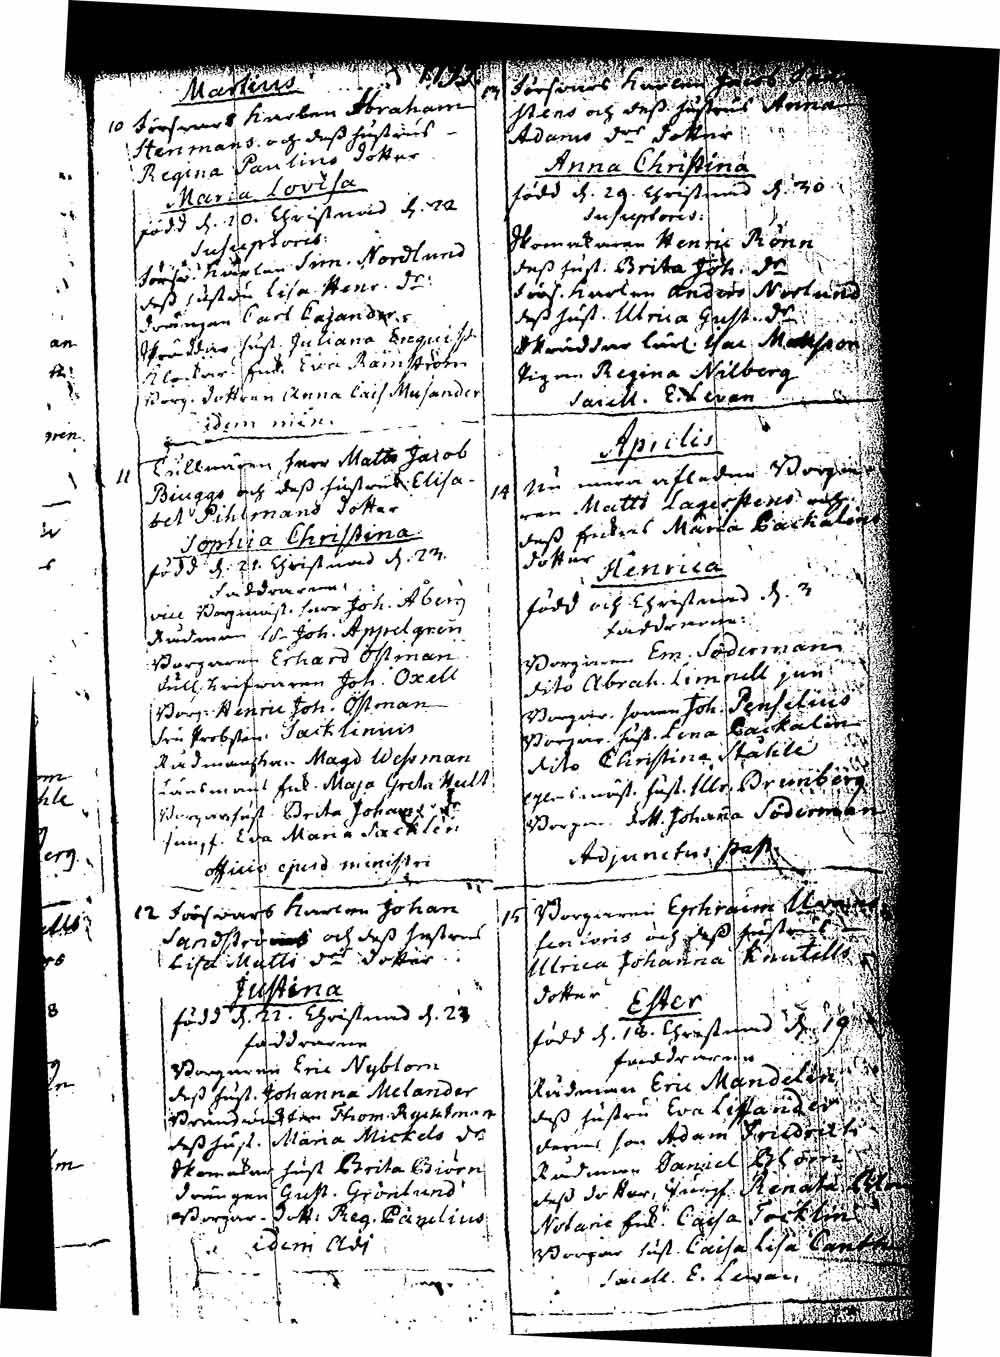 Martius
10 Försvars Karlen Abraham
Stenmans och dess hustrus
Regina Paulins dotter
Maria Lovisa
född d. 20. Christnad d. 22
Susceptores:
Försv. Karlen Sim. Nordlund
dess hustru Lisa Henr. dr
drängen Carl Cajander
Skräddar hust. Juliana Enquist
Klockar. fru. Eva Ramström
Borg. dottren Anna Cais. Musander
idem min.
11 Tullnären herr Matts Jacob
Biuggs och dess hustrus Elisa-
bet Pihlmans dotter
Sophia Christina
född d. 21. Christnad d. 23.
Faddrarne:
vice Borgmäst. herr Joh. Åberg
Rådman Joh. Appelgren
Borgaren Erhard Östman
Tull. skrifvaren Joh. Oxell
Borg. Henric Joh. Östman
Fru Probstin. Sacklinius
Rådmanskan Magd Wessman
Länsmans fru. Maja Greta Hult
Borgarhust. Brita Johans dr
Jungf. Eva Maria Sacklen
officio ejusd. ministri
12 Försvars Karlen Johan
Sandströms och dess hustrus
Lisa Matts dr dotter
Justina
född d. 22. Christnad d. 23
faddrarne
Borgaren Eric Nyblom
dess hust. Johanna Melander
Thom. Ryckman
dess hust. Maria Mickels dr
Skomakar hust Brita Biörn
drängen Gust. Grönlund
Borgar. dott. Reg. Pänelius
idem Adj
13 Försvars Karlen Jacob
stens och dess hustrus Anna
Adams drs dotter
Anna Christina
född d. 29. Christnad d. 30
Susceptores:
Skomakaren Henric Rönn
dess hust. Brita Joh. dr
Försv. Karlen Anders Norlund
dess hust. Ulrica Gust. dr
Skräddar Isac Mattsson
Pigan Regina Nilberg
Sacell. E. Levan
Aprilis
14 Nu mera afledne Borga-
ren Matts Lagerstens och
dess Enkas Maria Backalins
dotter
Henrica
född och Christnad d. 3
faddrarne:
Borgaren Em. Söderman
dito Abrah. Limnell jun
Borgar. sonen Joh. Penselius
Borgar. hust. Lena Backalin
dito Christina Ståhle
hust. Ulr. Brunberg
Borgar. dott. Johanna Söderman
Adjunctus past.
15 Borgaren Ephraim
senioris och dess hustrus
Ulrica Johanna Knutells
dotter
Ester
född d. 18. Christnad d. 19
faddrarne
Rådman Eric Mandelin
dess hustru Eva Lissander
deras son Adam Friedrich
Rådman Daniel Blom
dess dotter, Jungf. Renata Blom
Notarie fru. Caisa Tocklin
Borgar hust. Caisa Lisa
Sacell. E. Levan